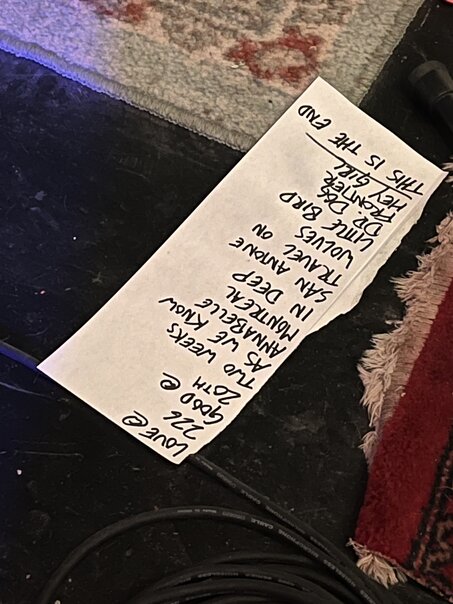 LOVE @
226
GOOD @
20TH
TWO WEEKS
AS WE KNOW
ANNABELLE
MONTREAL
IN DEEP
SAN ANTONE
TRAVEL ON
WOLVES
LITTLE BIRD
DR. DOG
FRONTIER
HEY GIRL
THIS IS THE END
CABLE